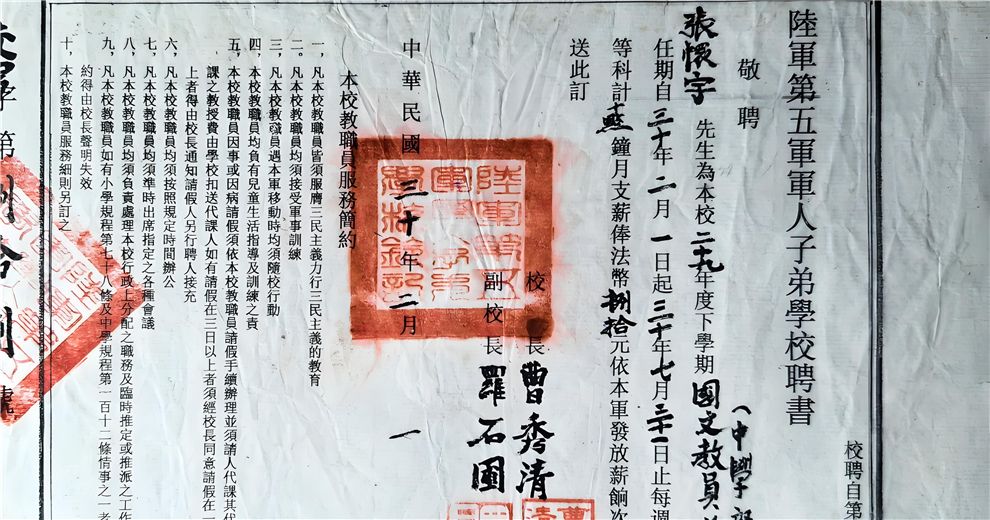 校聘自第
陸軍第五軍軍人子弟學校聘書
敬聘
張懷宇 先生為本校二十九年度下學期國文教員
(中學部
任期自三十年二月一日起三十年七月三十一日止每週
等科計 鐘月支薪俸法幣捌拾元依本軍發放薪餉次
送此訂
校長曹秀清
副校長羅石圃
中華民國三十年二月 一
本校教職員服務簡約
一，凡本校教職員皆須服膺三民主義力行三民主義的教育
二。凡本校教職員均須接受軍事訓練
三，凡本校教職員遇本軍移動時均須隨校行動
四，本校教職員均負有兒童生活指導及訓練之責
五，本校教職員因事或因病請假須依本校教職員請假手續辦理並須請人代課其代
課之教授費由學校扣送代課人如有請假在三日以上者須經校長同意請假在一
上者得由校長通知請假人另行聘人接充
六，凡本校教職員均須按照規定時間辦公
七，凡本校教職員均須準時出席指定之各種會議
八，凡本校教職員均須負責處理本校行政上分配之職務及臨時推定或推派之工作
九，凡本校教職員如有小學規程第七十八條及中學規程第一百十二條情事之一者
約得由校長聲明失效
十，本校教職員服務細則另訂之
第捌拾 號